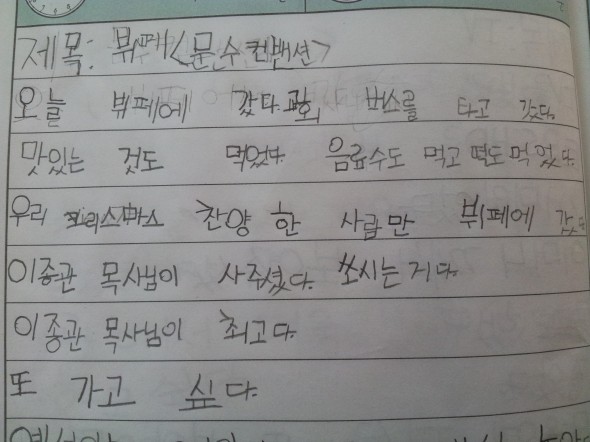 제목: 뷔페<문수컨밴션>
오늘 뷔페에 갔다. 버스를 타고 갔다.
맛있는 것도 먹었다. 음료수도 먹고 떡도 먹었다.
우리 크리스마스 찬양 한 사람만 뷔페에 갔다
이종관 목사님이 사주셨다. 쏘시는거다.
이종관 목사님이 최고다.
또 가고 싶다.